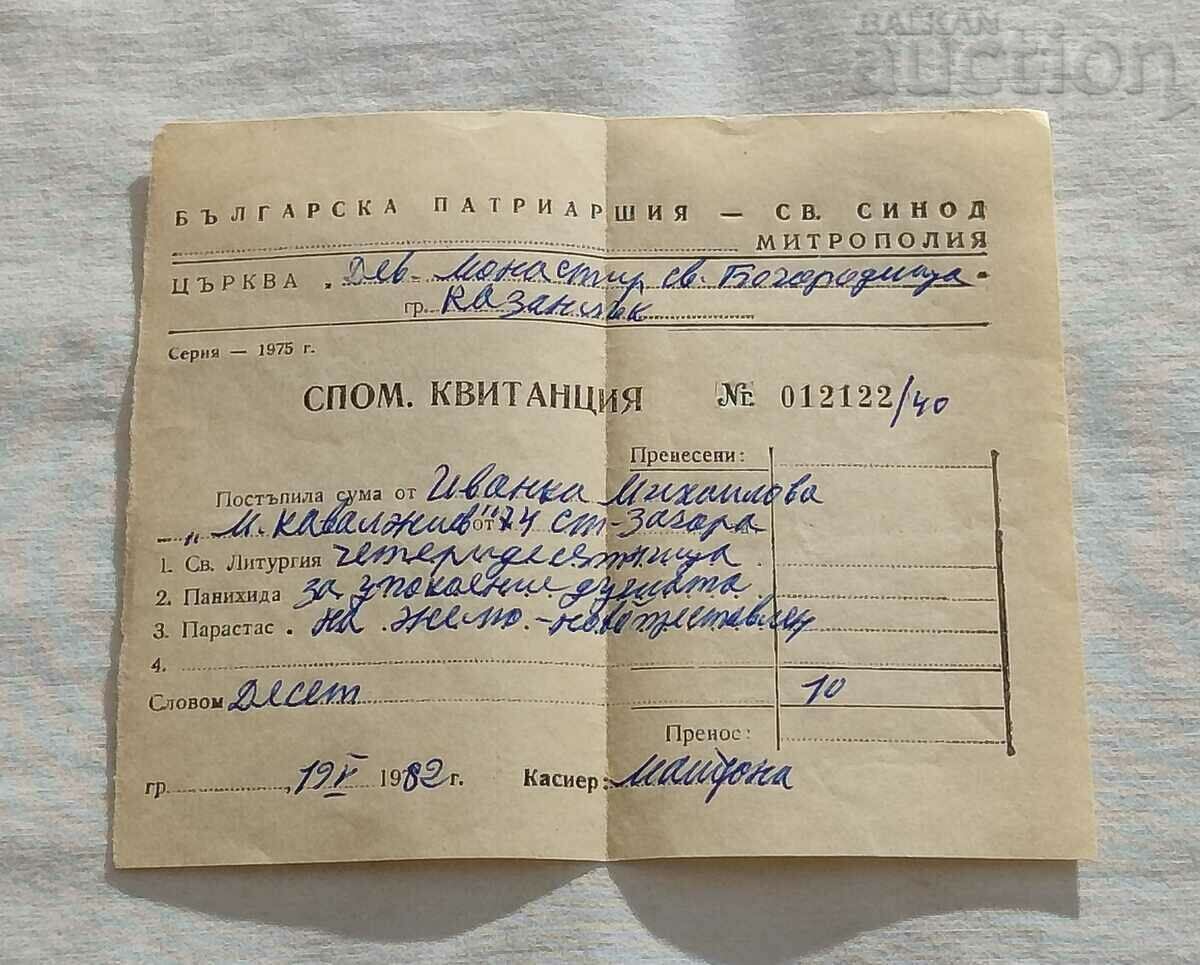 BALKAN
auction
БЪЛГАРСКА ПАТРИАРШИЯ — СВ. СИНОД
МИТРОПОЛИЯ
ЦЪРКВА Дев. Монастир св. Богородица
гр. Казанлък
Серия — 1975 г.
СПОМ. КВИТАНЦИЯ № 012122/40
Пренесени:
Постъпила сума от Иванка Михаилова
от 74 ст-Загора
1. Св. Литургия четеридесятница
2. Панихида за упокоение душата
3. Парастас на Желю - новопреставлен
4.
Словом Десет 10
Пренос:
гр. , 19 V 1982 г. Касиер: